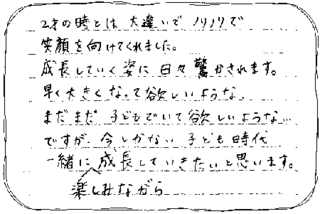 2才の時とは大違いで ノリノリで
笑顔を向けてくれました。
成長していく姿に日々驚かされます。
早く大きくなって欲しいような、
まだまだ子どもでいて欲しいような…
ですが、今しかない子ども時代
一緒に成長していきたいと思います。
楽しみながら